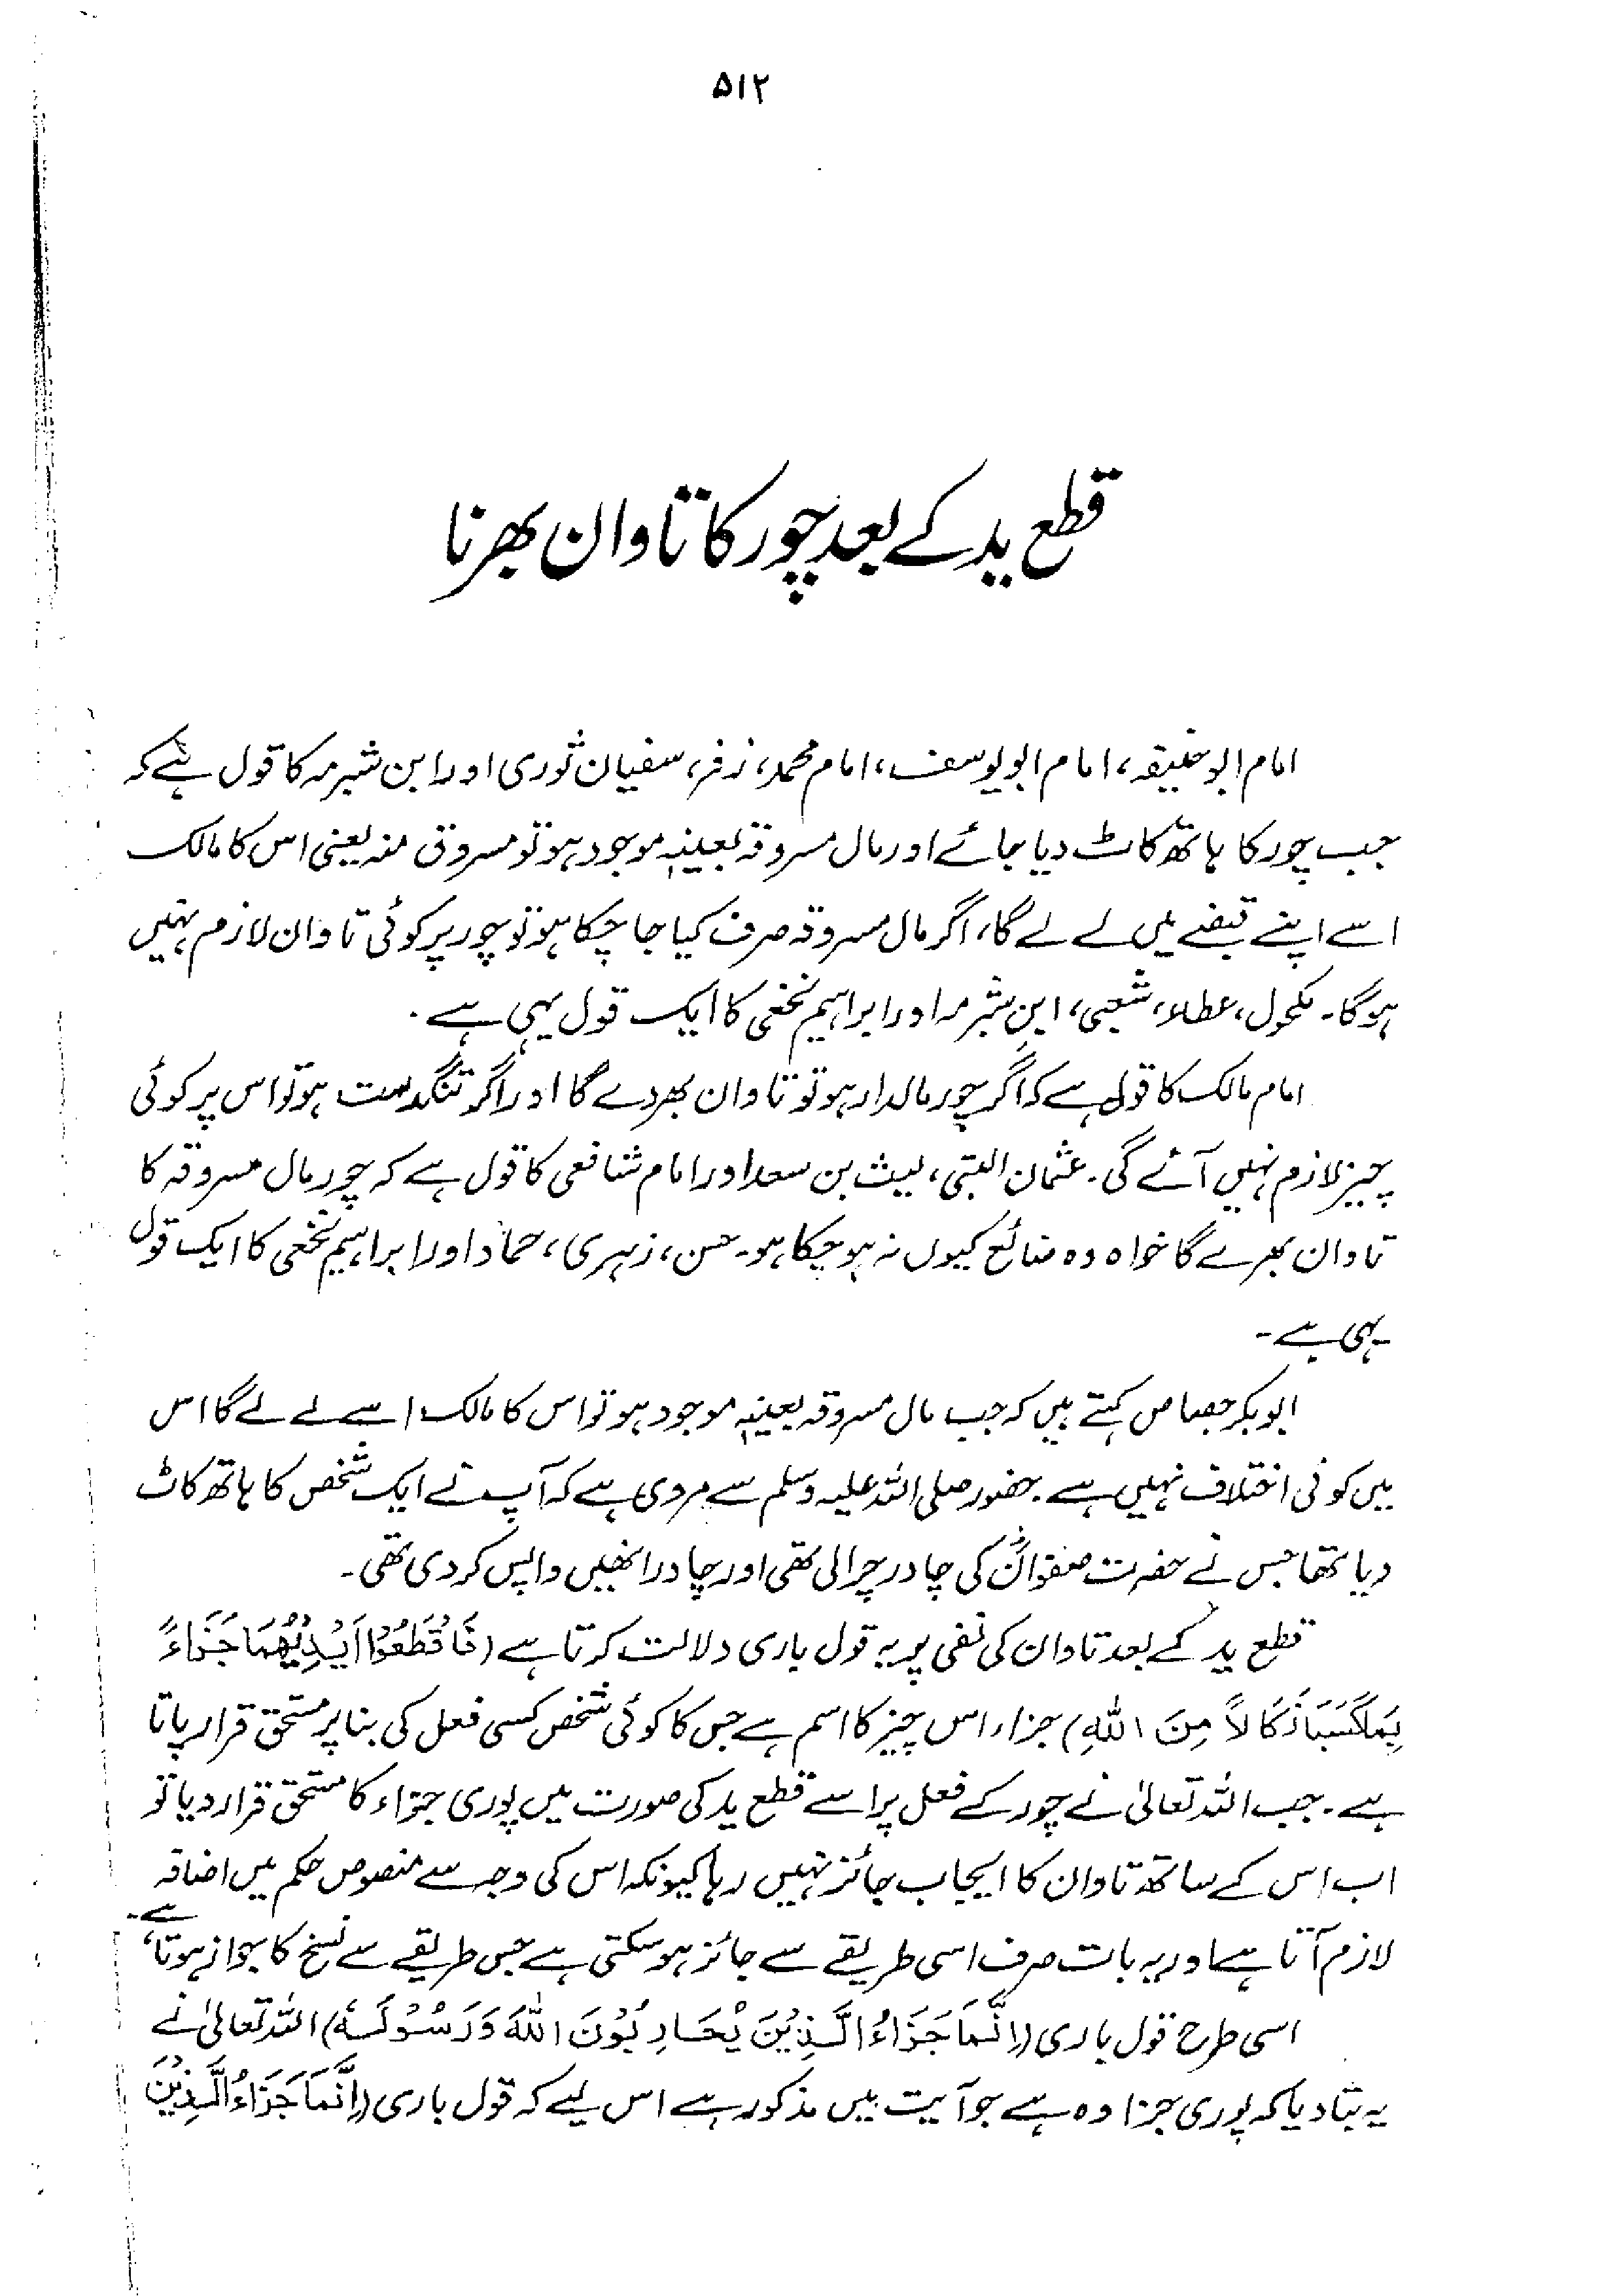 ۵۱۲
قطع ید کے بعد چور کا تاوان بھرنا
امام ابو حنیفہ، امام ابو یوسف، امام محمد، زفر، سفیان ثوری اور ابن شبرمہ کا قول ہے کہ
جب چور کا ہاتھ کاٹ دیا جائے اور مال مسروقہ بعینہٖ موجود ہو تو مسروق منہ یعنی اس کا مالک
اسے اپنے قبضے میں لے لے گا، اگر مال مسروقہ صرف کیا جا چکا ہو تو چور پر کوئی تاوان لازم نہیں
ہوگا۔ مکحول، عطاء، شعبی، ابنِ شبرمہ اور ابراہیم نخعی کا ایک قول یہی ہے۔
امام مالک کا قول ہے کہ اگر چور مالدار ہو تو تاوان بھر دے گا اور اگر تنگدست ہو تو اس پر کوئی
چیز لازم نہیں آئے گی۔ عثمان البتی، لیث بن سعد اور امام شافعی کا قول ہے کہ چور مال مسروقہ کا
تاوان بھرے گا خواہ وہ ضائع کیوں نہ ہو چکا ہو۔ حسن، زہری، حماد اور ابراہیم نخعی کا ایک قول
یہی ہے۔
ابوبکر جصاص کہتے ہیں کہ جب مال مسروقہ بعینہٖ موجود ہو تو اس کا مالک اسے لے لے گا اس
میں کوئی اختلاف نہیں ہے۔ حضور صلی اللہ علیہ وسلم سے مروی ہے کہ آپ نے ایک شخص کا ہاتھ کاٹ
دیا تھا جس نے حضرت صفوانؓ کی چادر چرالی تھی اور چادر انھیں واپس کر دی تھی۔
قطع ید کے بعد تاوان کی نفی پر یہ قول باری دلالت کرتا ہے (فَاقْطَعُوْا اَيْدِيَهُمَا جَزَاءً
بِمَا كَسَبَا نَكَالاً مِنَ اللهِ) جزاء اس چیز کا اسم ہے جس کا کوئی شخص کسی فعل کی بنا پر مستحق قرار پاتا
ہے۔ جب اللہ تعالیٰ نے چور کے فعل پر اسے قطع ید کی صورت میں پوری جزاء کا مستحق قرار دیا تو
اب اس کے ساتھ تاوان کا ایجاب جائز نہیں رہا کیونکہ اس کی وجہ سے منصوص حکم میں اضافہ
لازم آتا ہے اور یہ بات صرف اسی طریقے سے جائز ہوسکتی ہے جس طریقے سے نسخ کا جواز ہوتا ہے۔
اسی طرح قول باری (اِنَّمَا جَزَاءُ الَّذِيْنَ يُحَارِبُوْنَ اللهَ وَرَسُوْلَهٗ) اللہ تعالیٰ نے
یہ بتا دیا کہ پوری جزا وہ ہے جو آیت میں مذکور ہے اس لیے کہ قول باری (اِنَّمَا جَزَاءُ الَّذِيْنَ